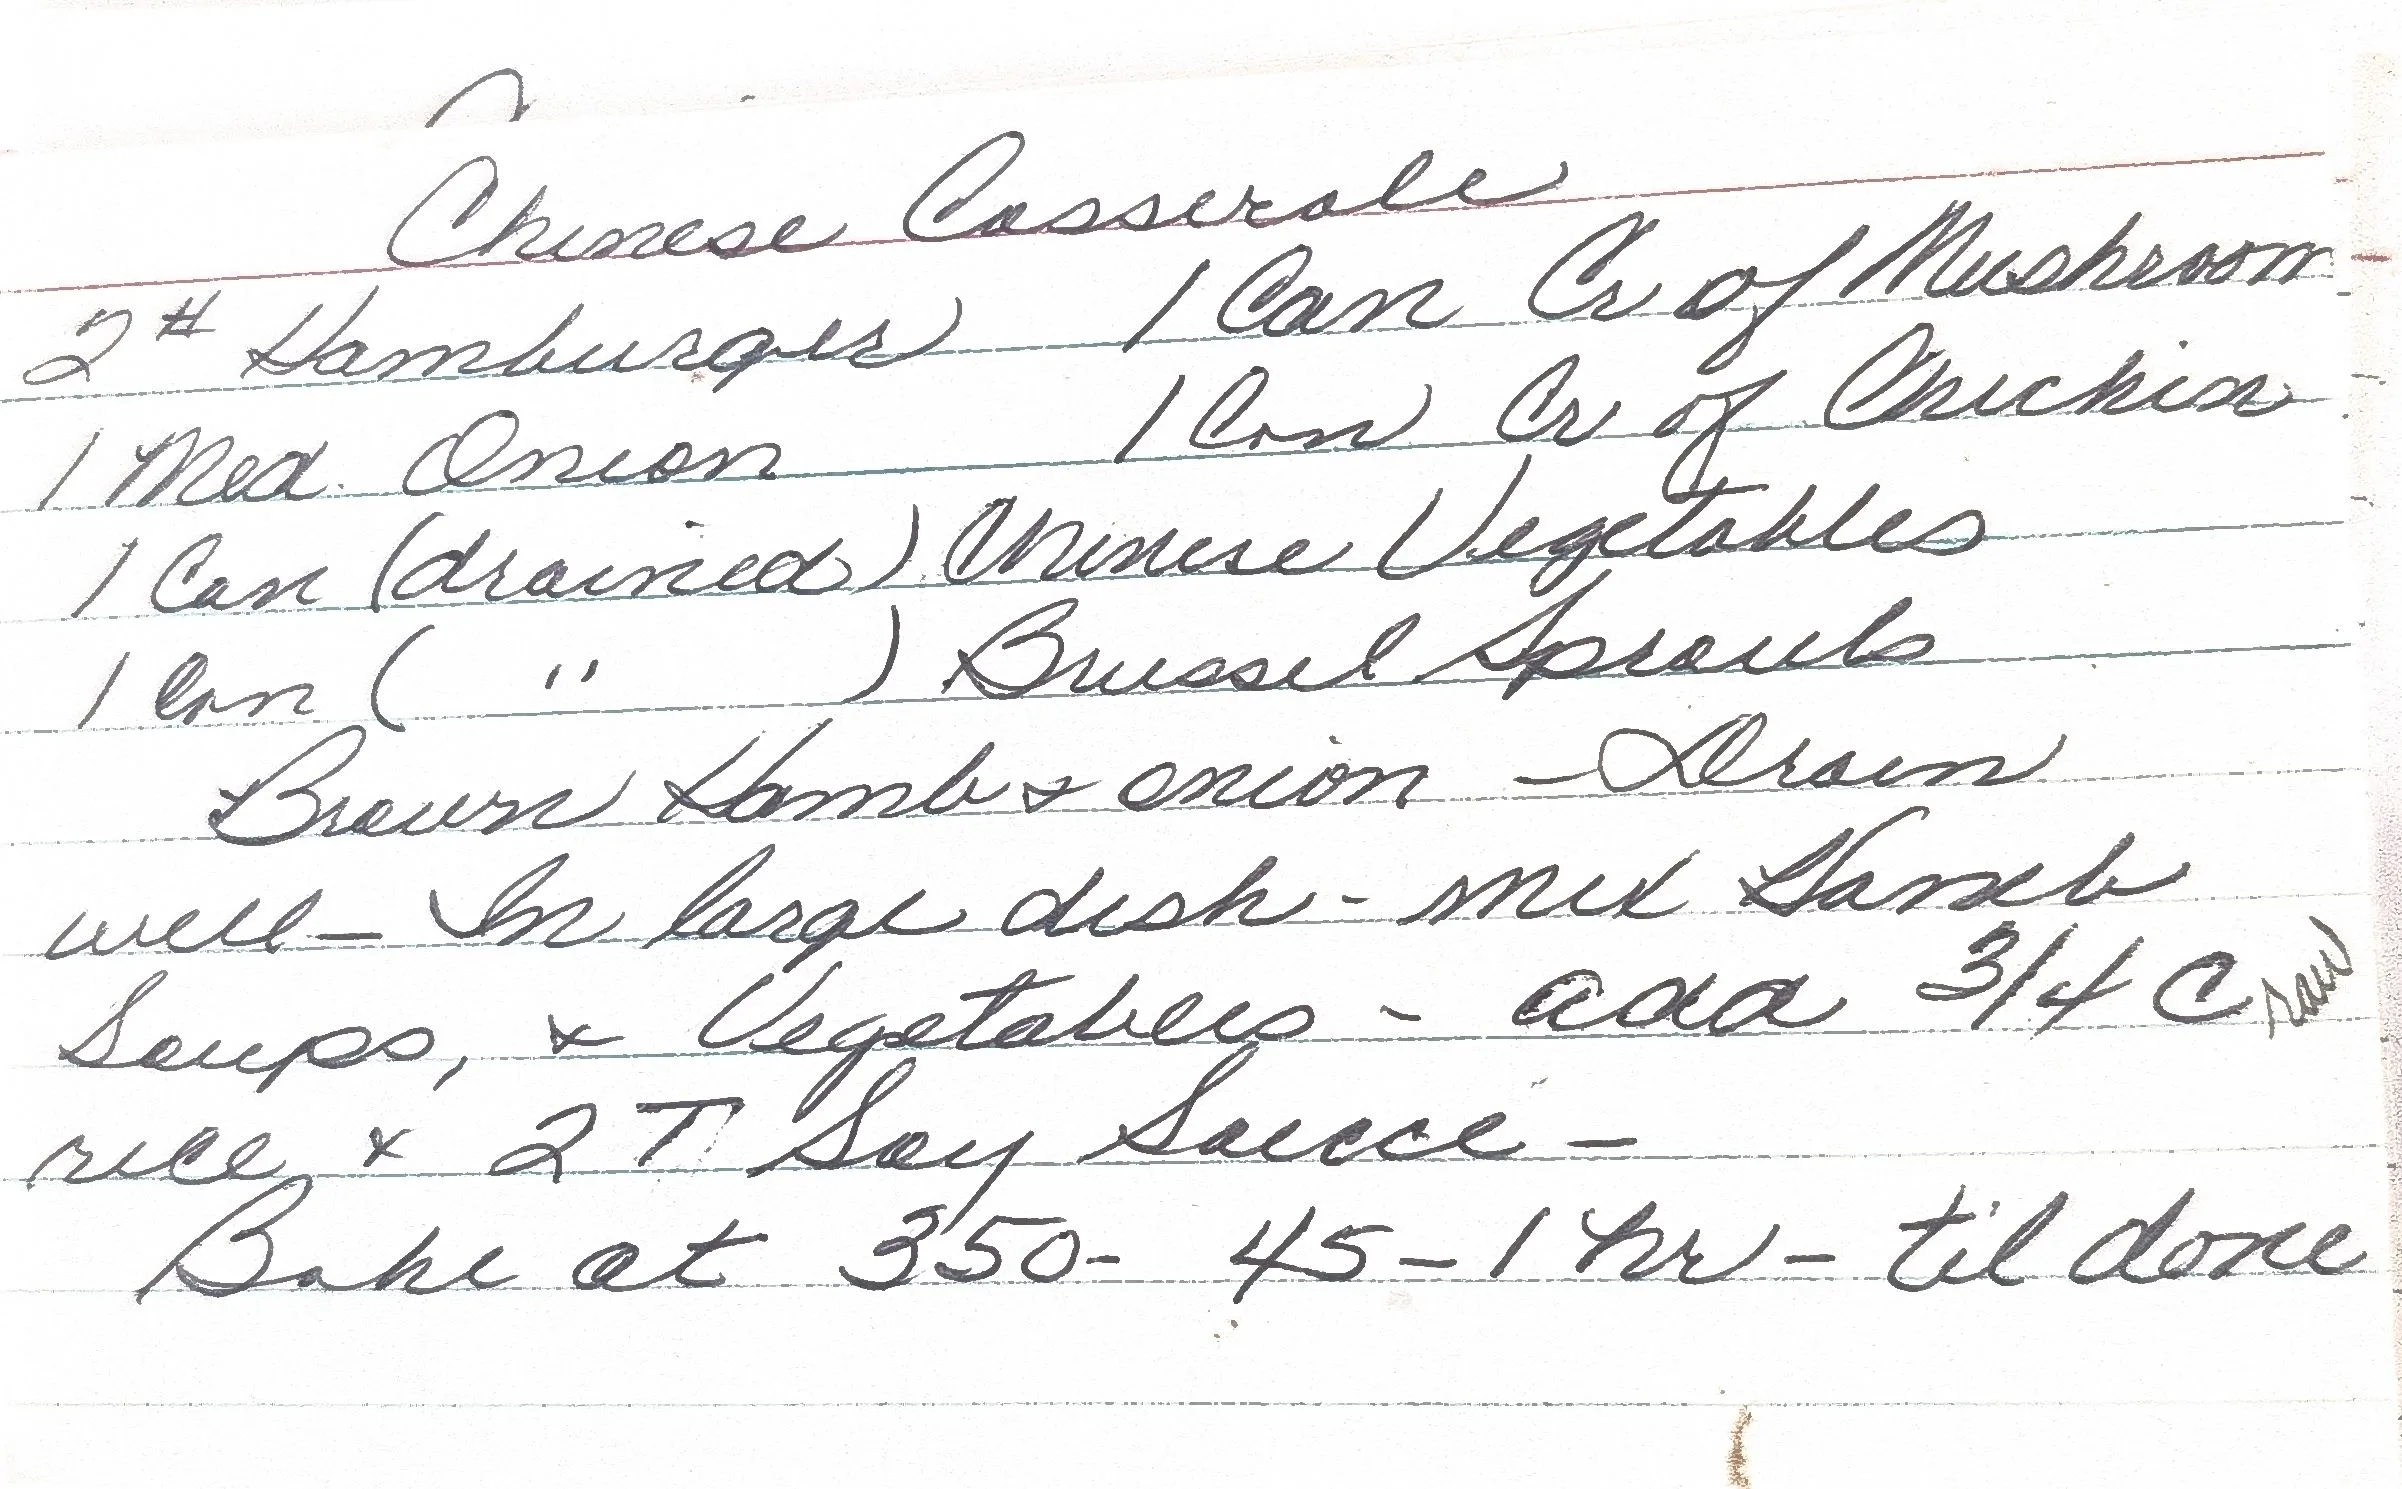 Chinese Casserole
2# Hamburger 1 Can Cr of Mushroom
1 Med. Onion 1 Can Cr of Chicken
1 Can (drained) Chinese Vegetables
1 Can ( " ) Brussel Sprouts
Brown Hamb & onion - Drain
well - In large dish - mix Hamb
Soups, & Vegetables - add 3/4 C raw
rice & 2 T Soy Sauce -
Bake at 350 - 45 - 1 hr - til done